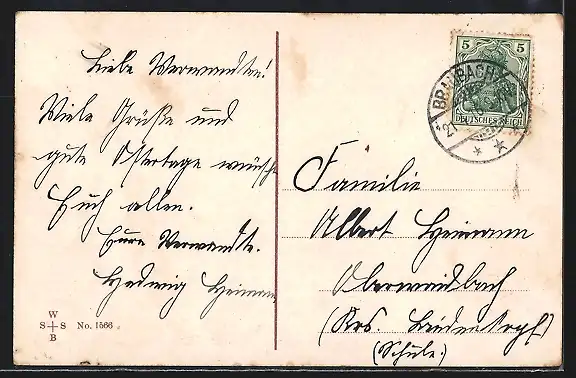 Liebe Verwandten!
Viele Grüße und
gute Ostertage wünscht
Euch allen.
Eure Verwandte.
Hedwig Heimann
W
S S
B
No. 1566
5 5
DEUTSCHES REICH
BRAUBACH
Familie
Albert Heimann
Oberweidbach
(Krs. Biedenkopf)
(Schule.)